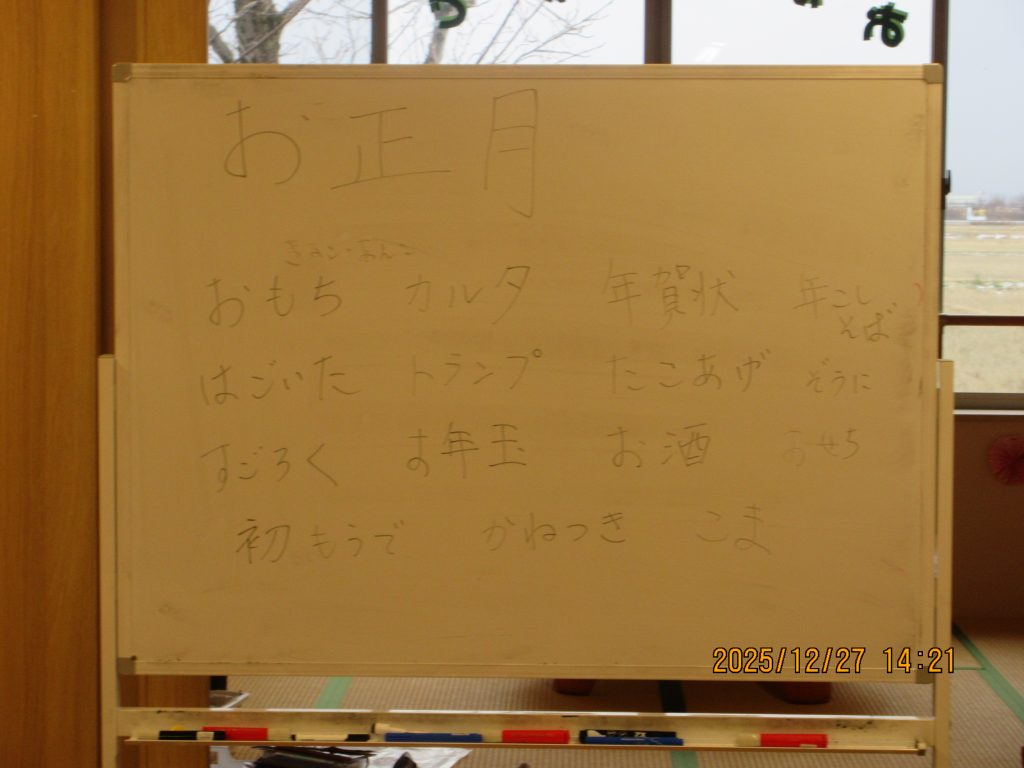 お正月
きなこ・あんこ
おもち カルタ 年賀状 年こし
そば
はごいた トランプ たこあげ ぞうに
すごろく お年玉 お酒 おせち
初もうで かねつき こま
2025/12/27 14:21